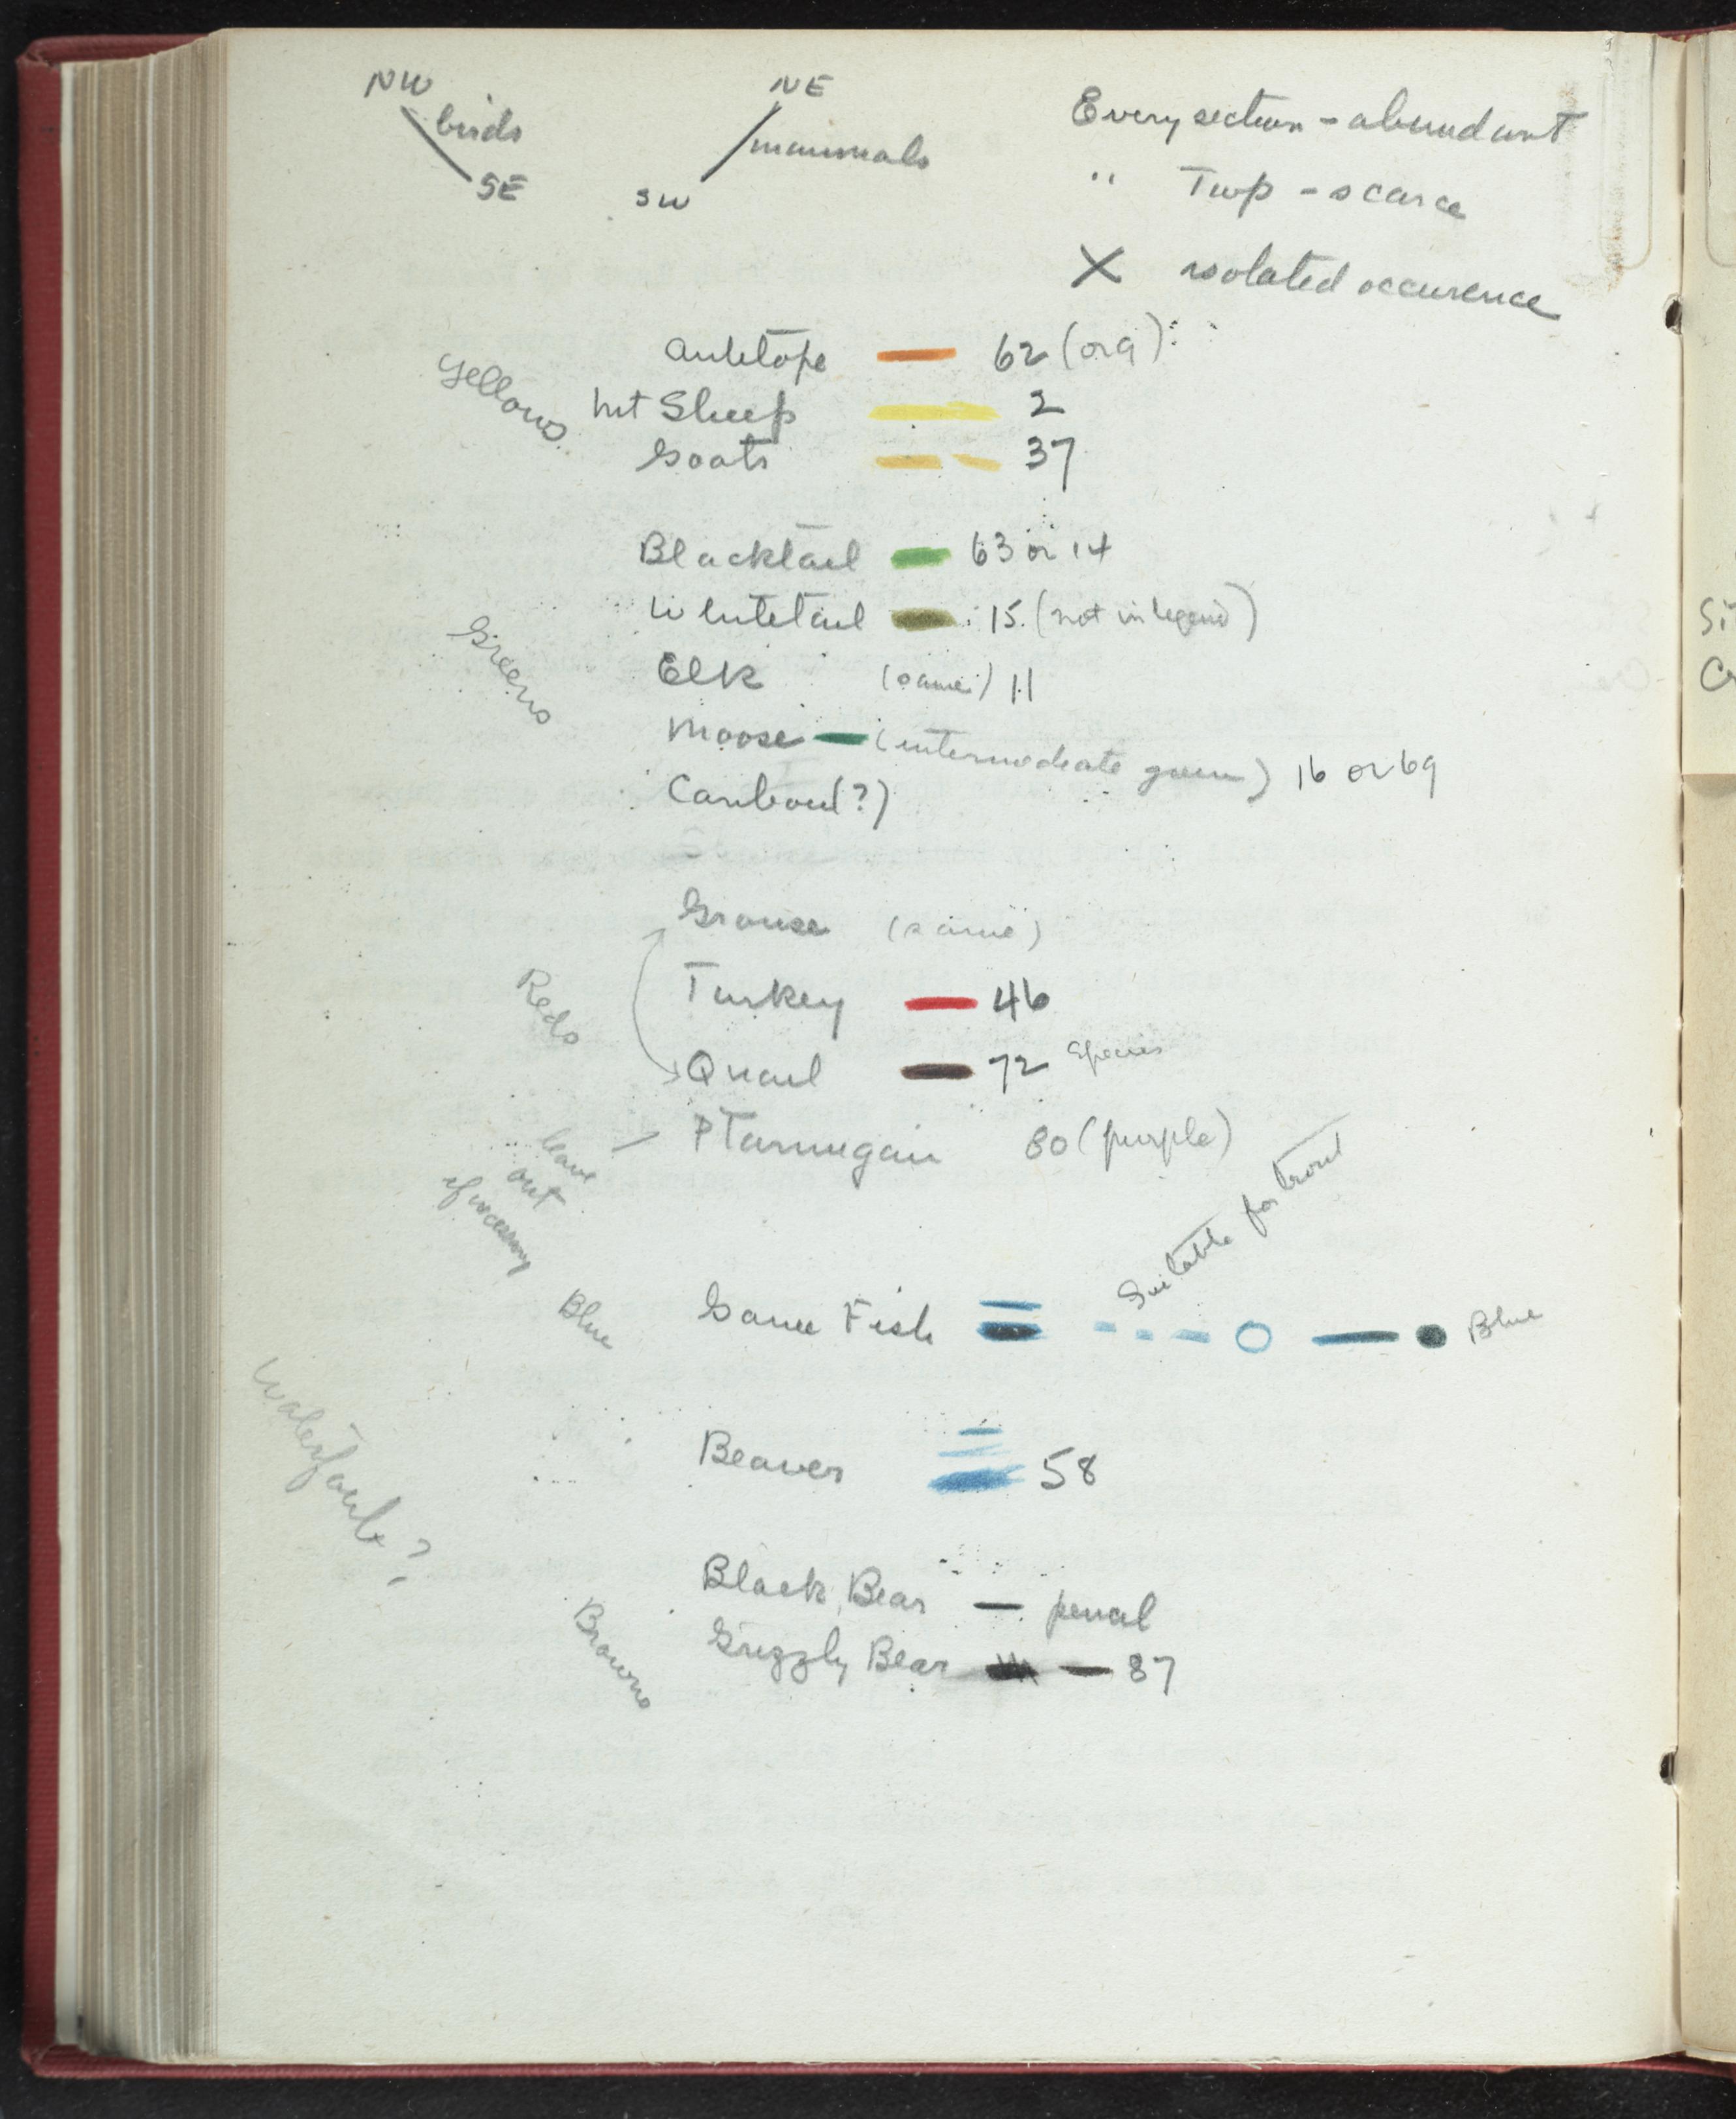 NW
birds
SE
NE
mammals
SW
Every section - abundant
" Twp - scarce
X isolated occurence
Yellows
Antelope 62 (org)
Mt Sheep 2
Goats 37
Greens
Blacktail 63 or 14
Whitetail 15 (not in legend)
Elk (same) 11
Moose (intermediate green) 16 or 69
Caribou (?)
Reds
Grouse (same)
Turkey 46
Quail 72 Species
Ptarmigan 80 (purple)
leave
out
if necessary
Suitable for trout
Blue
Game Fish Blue
Waterfowl?
Beaver 58
Browns
Black Bear pencil
Grizzly Bear 87
Si